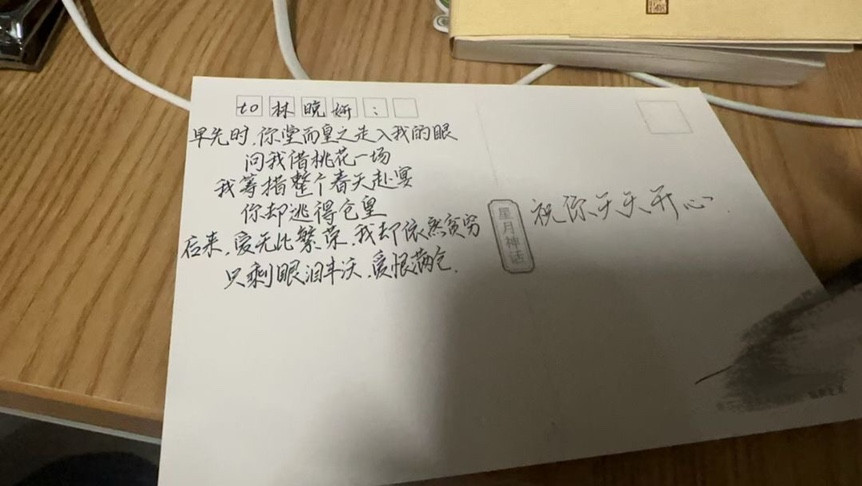 to林晚妍:
早先时,你堂而皇之走入我的眼
问我借桃花一场
我筹措整个春天赴宴
你却逃得仓皇
后来,爱无比繁荣,我却依然贫穷
只剩眼泪丰沃,爱恨两空.
星月神话
祝你天天开心